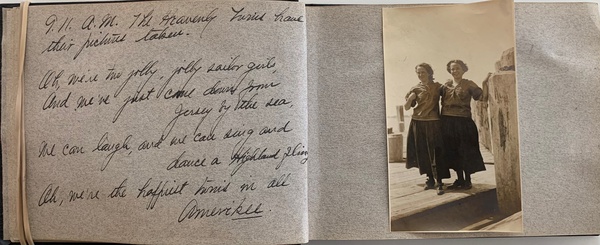 9.11. A.M. The Heavenly Twins have
their pictures taken.
Oh, we're two jolly, jolly sailor girls,
And we've just come down from
Jersey by the sea,
We can laugh, and we can sing and
dance a Highland fling
Oh, we're the happiest twins in all
Amerikee.